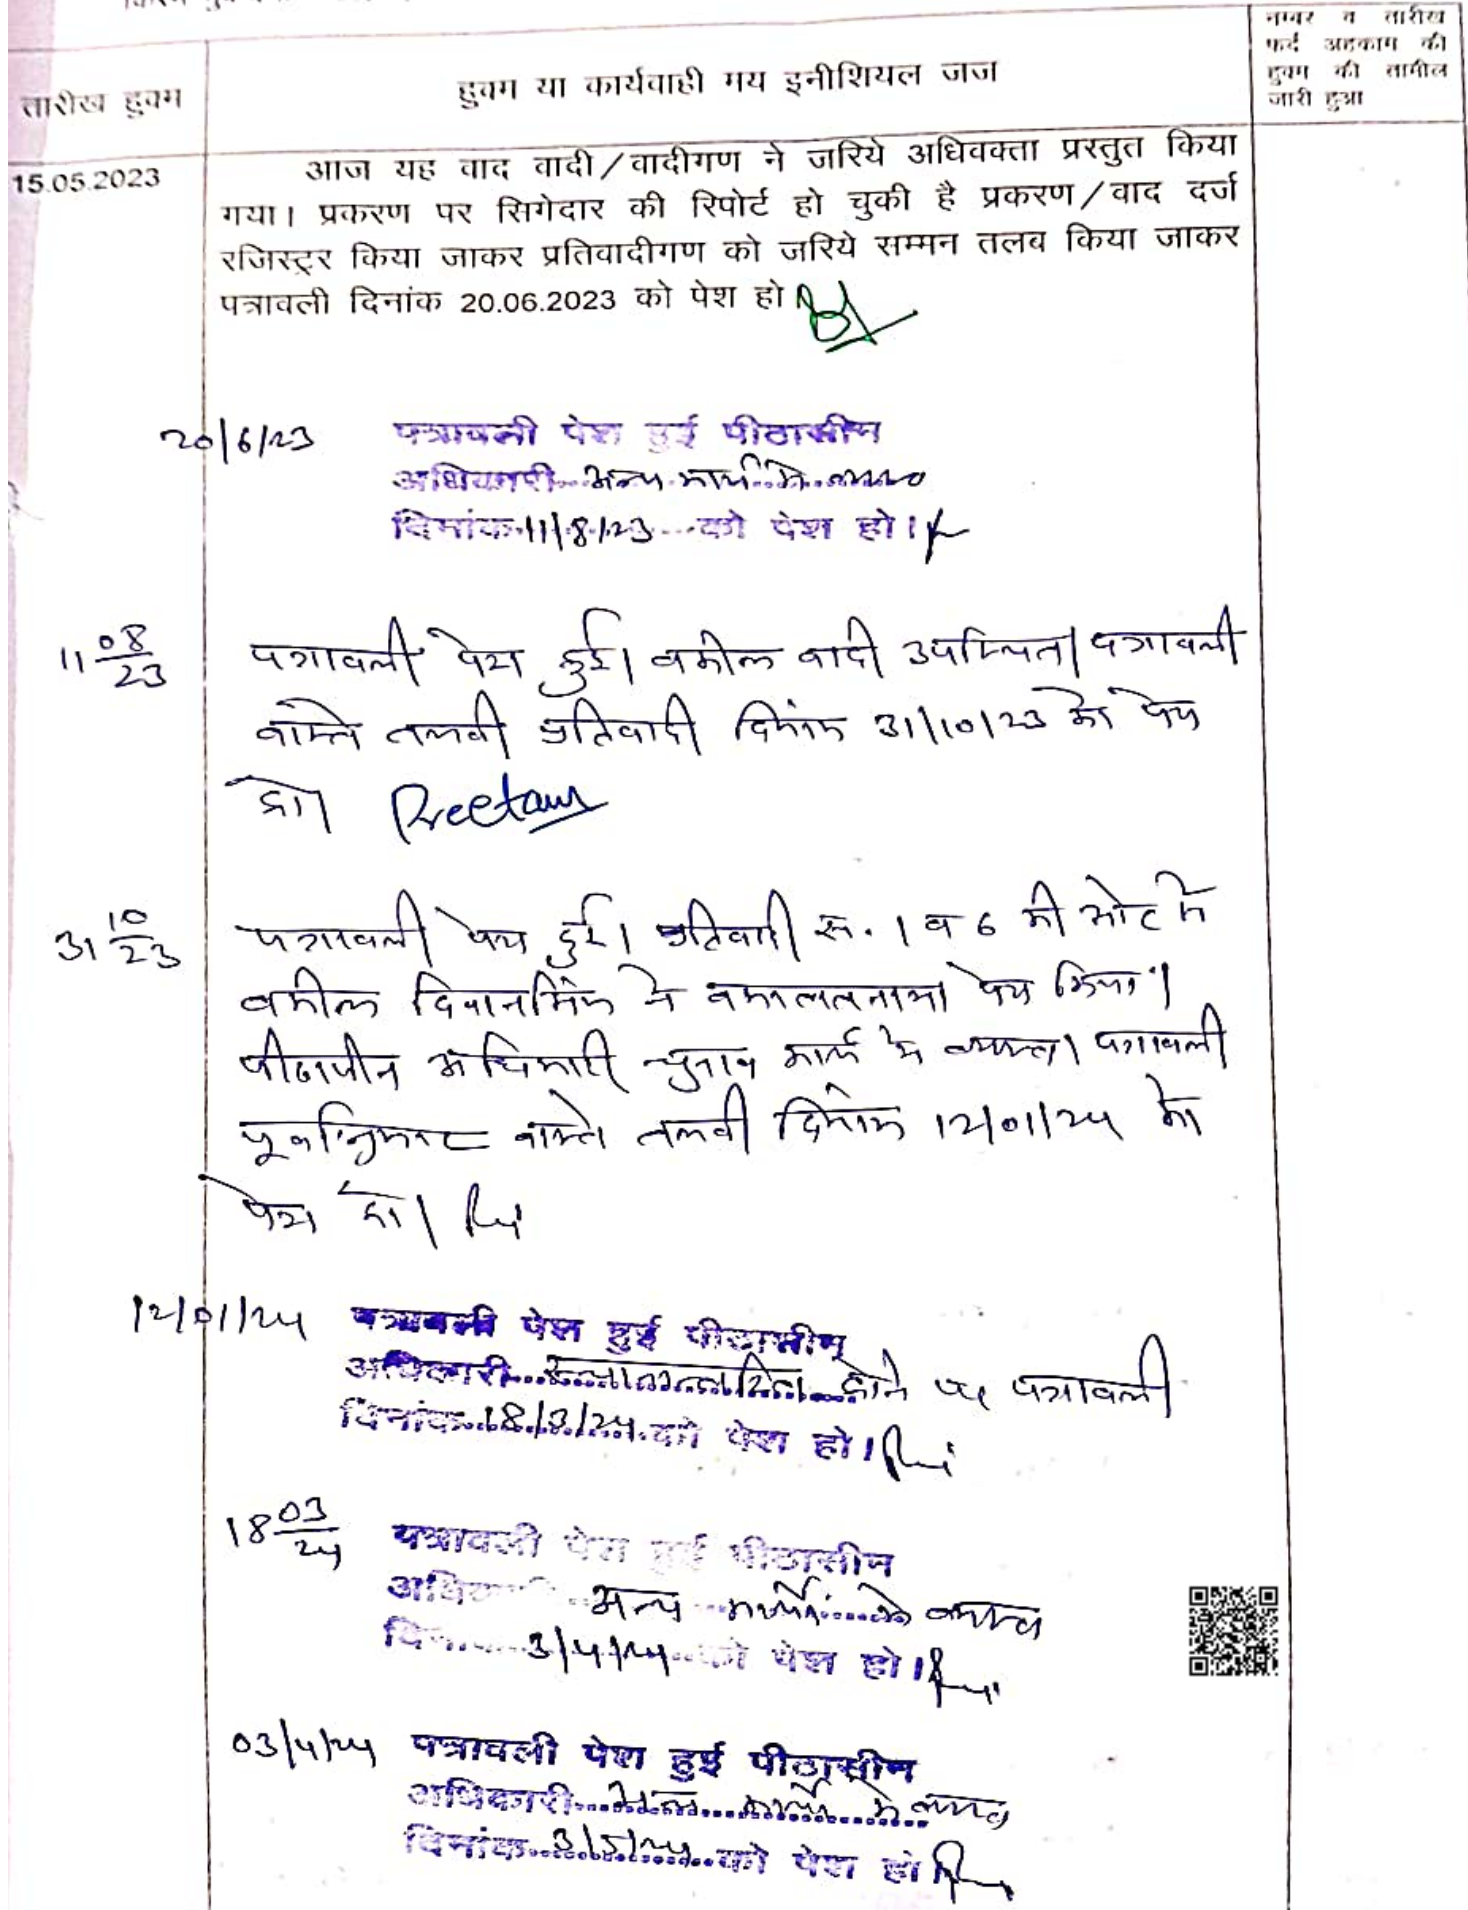 नम्बर व तारीख
फर्द अहकाम की
हुक्म की तामील
जारी हुआ
तारीख हुक्म
हुक्म या कार्यवाही मय इनीशियल जज
15.05.2023
आज यह वाद वादी/वादीगण ने जरिये अधिवक्ता प्रस्तुत किया
गया। प्रकरण पर सिगेदार की रिपोर्ट हो चुकी है प्रकरण/वाद दर्ज
रजिस्ट्रर किया जाकर प्रतिवादीगण को जरिये सम्मन तलब किया जाकर
पत्रावली दिनांक 20.06.2023 को पेश हो
20/6/23 पत्रावली पेश हुई पीठासीन
अधिकारी अन्य कार्य में व्यस्त
दिनांक 11/8/23 को पेश हो।
11 08/23 पत्रावली पेश हुई। वकील वादी उपस्थित। पत्रावली
वास्ते तलबी प्रतिवादी दिनांक 31/10/23 को पेश
हो।
31 10/23 पत्रावली पेश हुई। प्रतिवादी स. 1 व 6 की ओर से
वकील ने वकालतनामा पेश किया।
पीठासीन अधिकारी चुनाव कार्य में व्यस्त। पत्रावली
पूर्वानुसार वास्ते तलबी दिनांक 12/01/24 को
पेश हो।
12/01/24 पत्रावली पेश हुई पीठासीन
अधिकारी स्थानान्तरित होने पर पत्रावली
दिनांक 18/3/24 को पेश हो।
18 03/24 पत्रावली पेश हुई पीठासीन
अधिकारी अन्य कार्य में व्यस्त
दिनांक 3/4/24 को पेश हो।
03/4/24 पत्रावली पेश हुई पीठासीन
अधिकारी अन्य कार्य में व्यस्त
दिनांक 3/5/24 को पेश हो